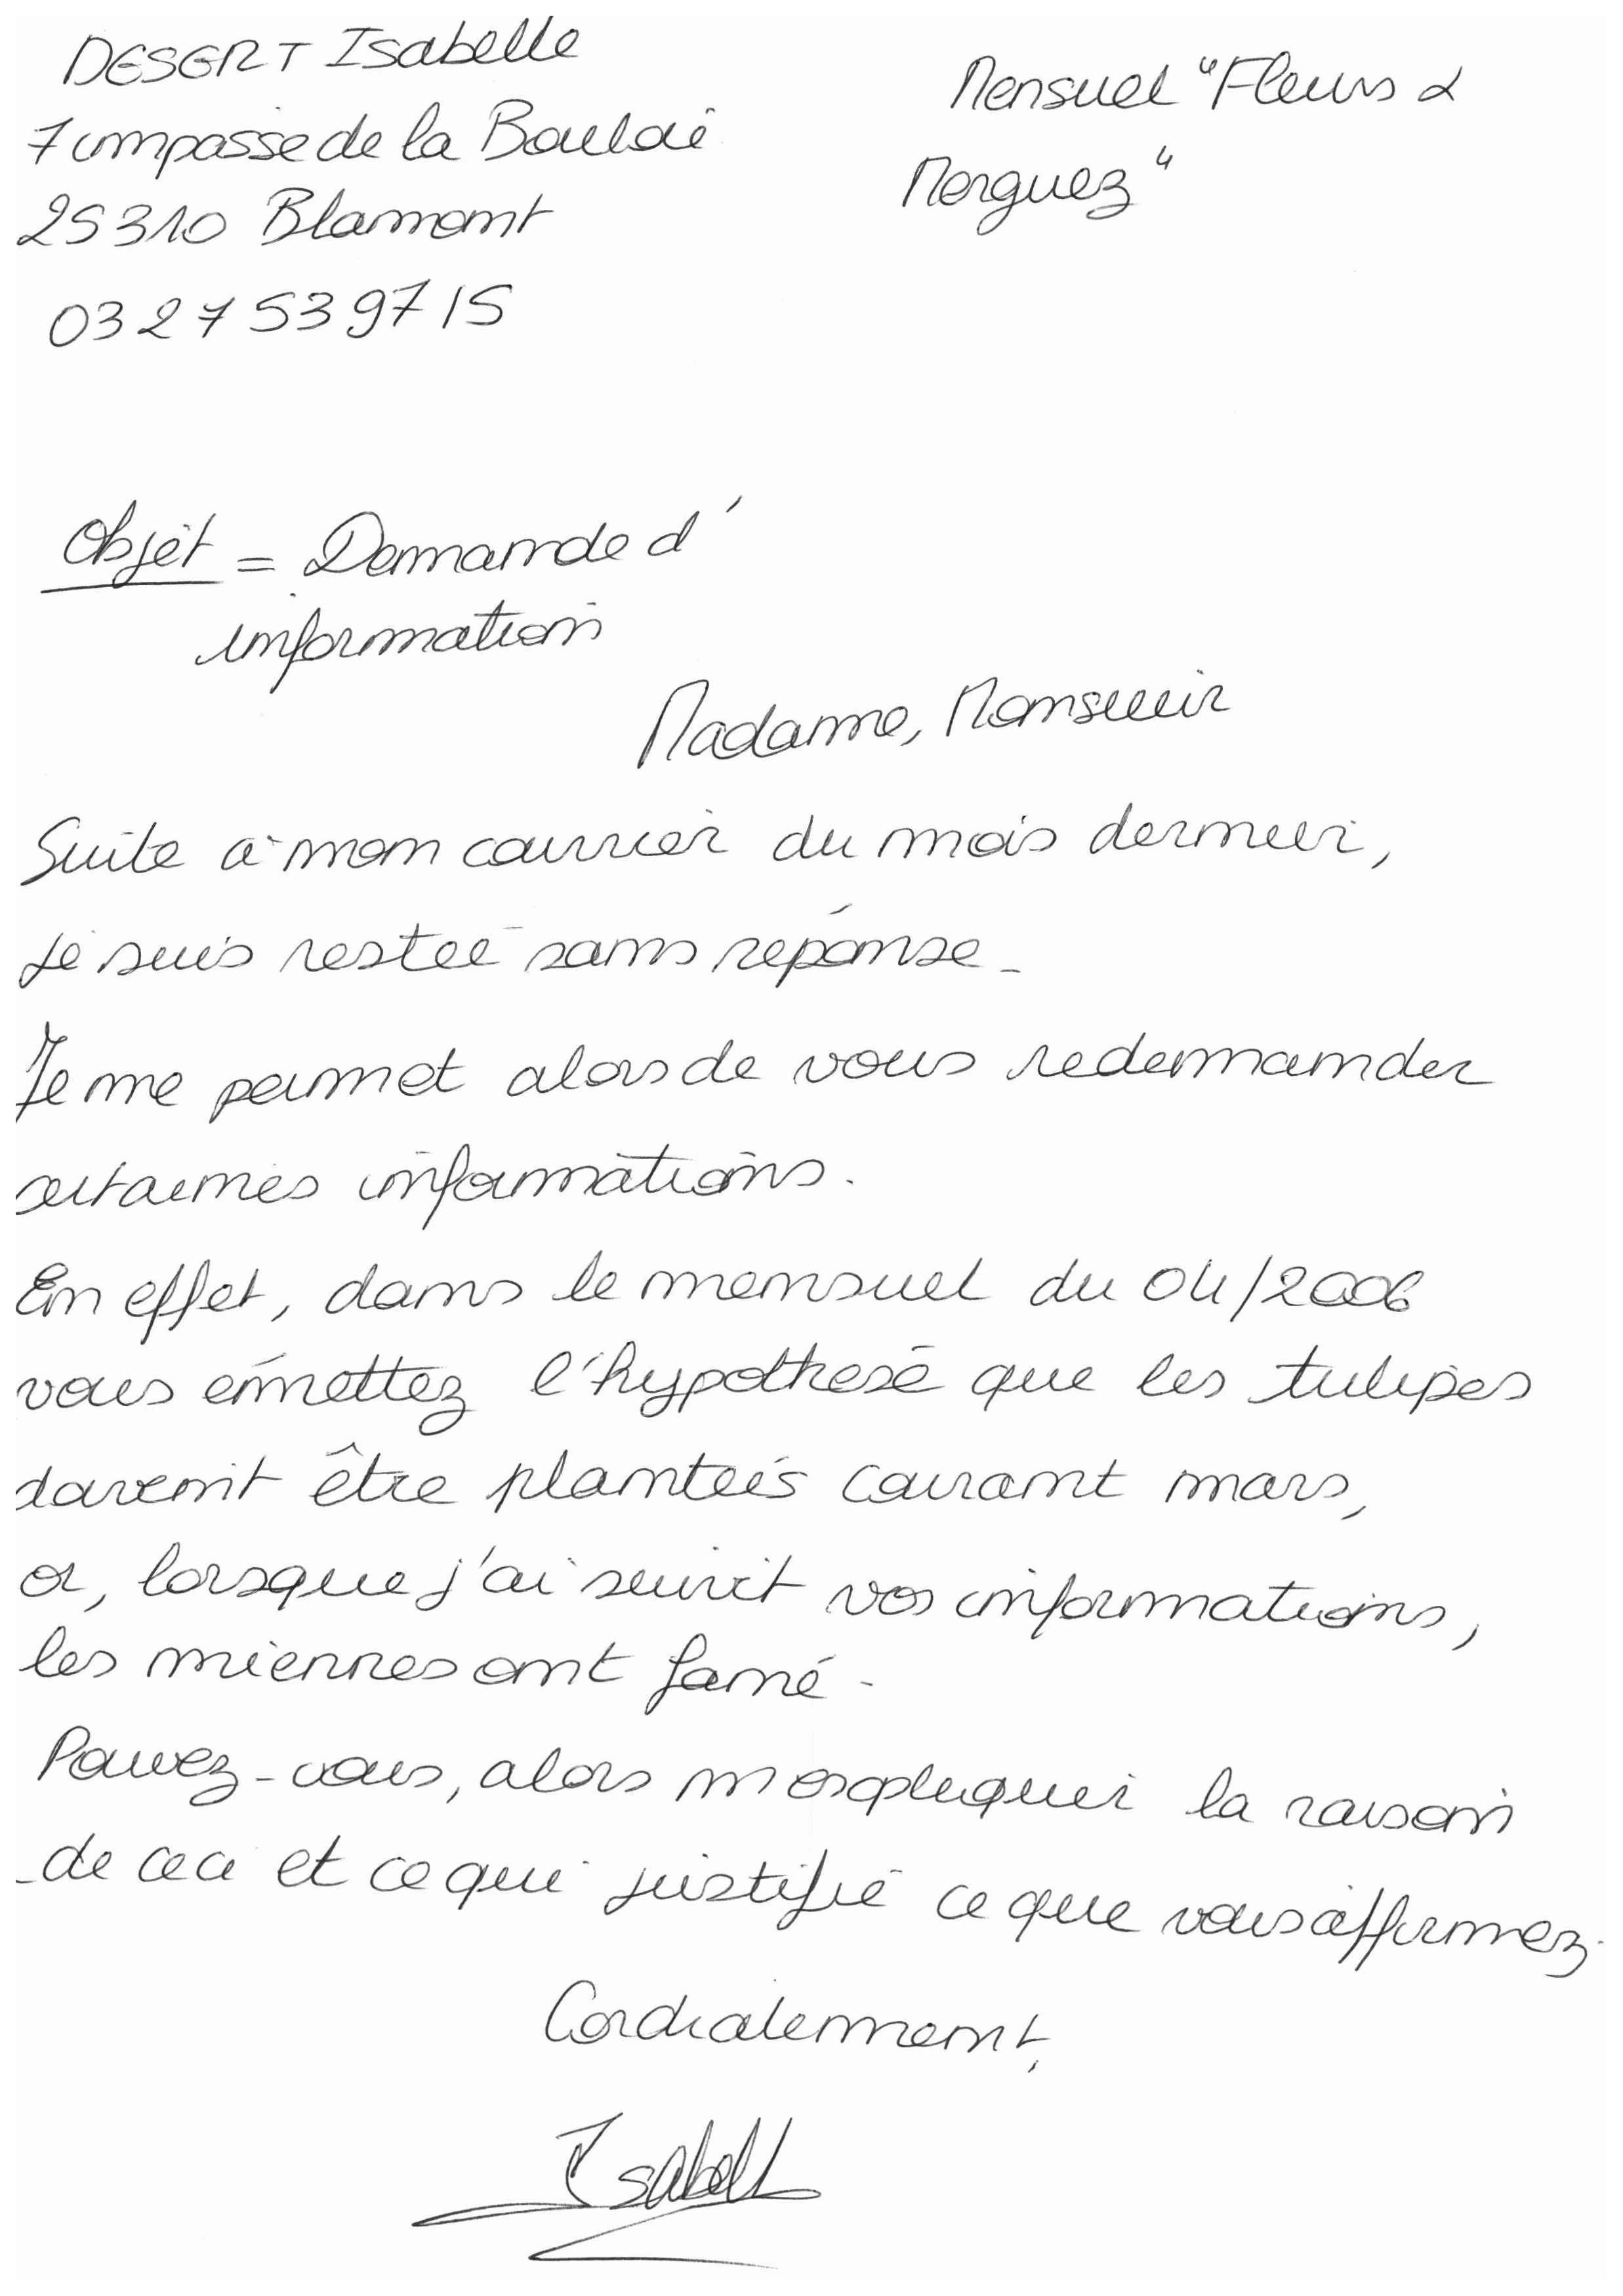 DESERT Isabelle
7 impasse de la Boulaie
25310 Blamont
03 27 53 97 15
Mensuel "Fleurs &
Merguez"
Objet = Demande d'
information
Madame, Monsieur
Suite à mon courrier du mois dernier,
je suis restée sans réponse.
Je me permet alors de vous redemander
certaines informations.
En effet, dans le mensuel du 04/2006
vous émettez l'hypothèse que les tulipes
doivent être plantées courant mars,
or, lorsque j'ai suivit vos informations,
les miennes ont fané.
Pouvez-vous, alors m'expliquer la raison
de ceci et ce qui justifie ce que vous affirmez.
Cordialement,
Isabelle